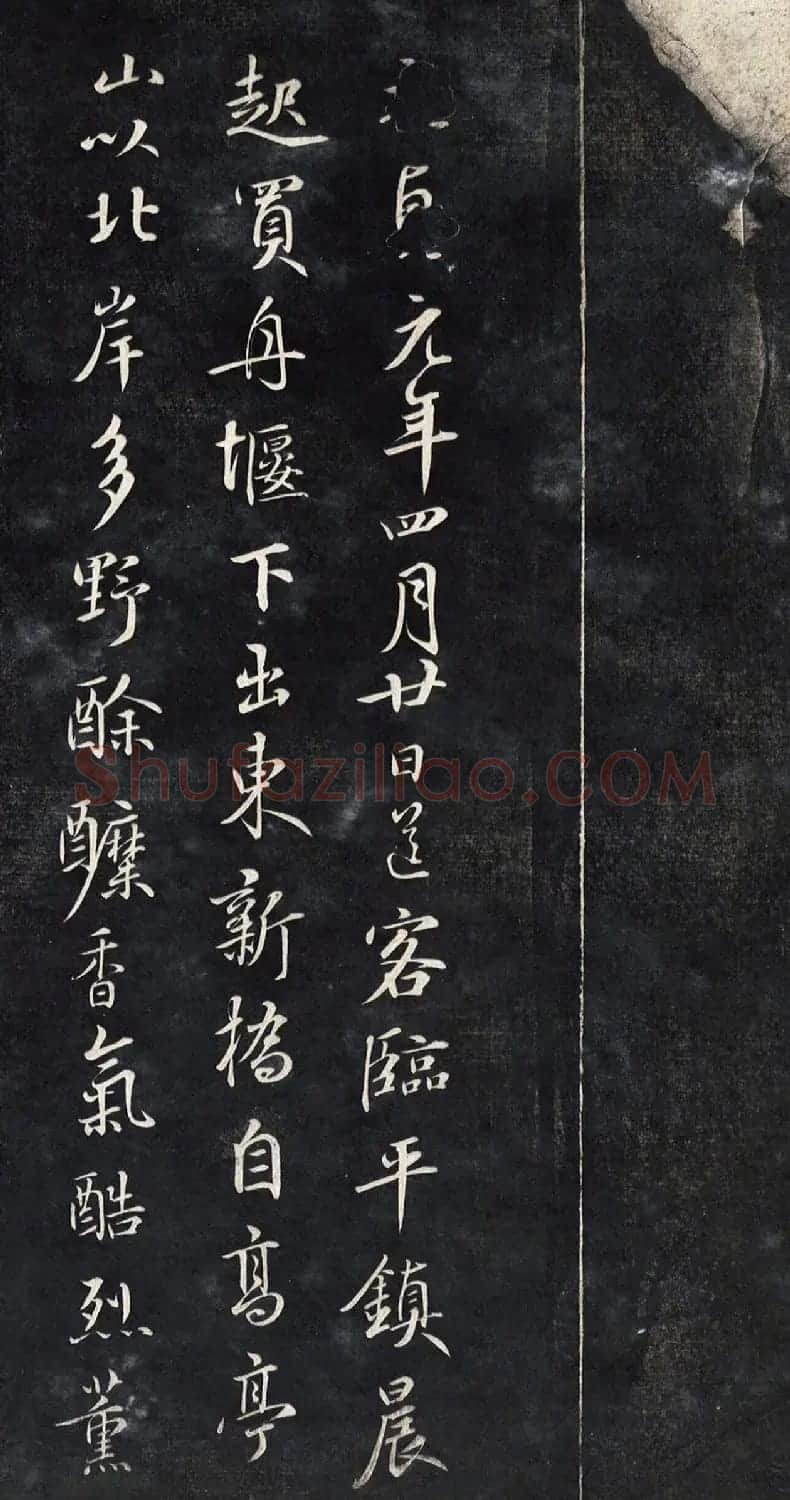 貞元年四月廿日送客臨平鎮晨
起買舟堰下出東新橋自高亭
山以北岸多野酴醿香氣酷烈薰
Shufaziliao.COM